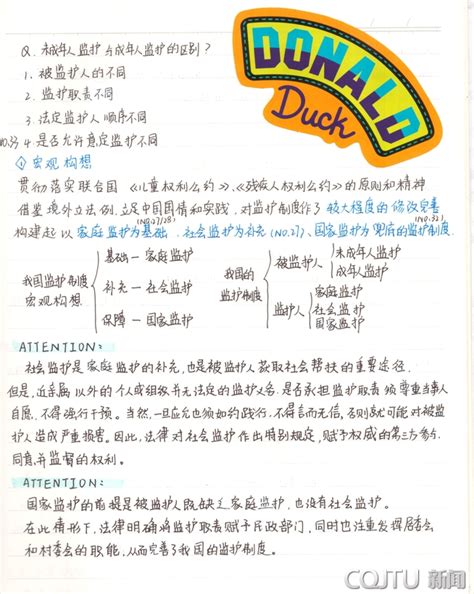 DONALD
Duck
Q. 未成年人监护与成年人监护的区别?
1. 被监护人的不同
2. 监护职责不同
3. 法定监护人顺序不同
NO.33 4. 是否允许意定监护不同
① 宏观构想
贯彻落实联合国《儿童权利公约》、《残疾人权利公约》的原则和精神
借鉴境外立法例,立足中国国情和实践,对监护制度作了较大程度的修改完善
构建起以家庭监护为基础(NO.27/28)、社会监护为补充(NO.27)、国家监护为兜底的监护制度(NO.32)
我国监护制度宏观构想
基础—家庭监护
补充—社会监护
保障—国家监护
我国的监护制度
被监护人
未成年人监护
成年人监护
监护人
家庭监护
社会监护
国家监护
ATTENTION:
社会监护是家庭监护的补充,也是被监护人获取社会帮扶的重要途径
但是,近亲属以外的个人或组织并无法定的监护义务,是否承担监护职责须尊重当事人
自愿,不得强行干预。当然,一旦应允也须如约践行,不得言而无信,否则就可能对被监
护人造成严重损害。因此,法律对社会监护作出特别规定,赋予权威的第三方参与、
同意并监督的权利。
ATTENTION:
国家监护的前提是被监护人既缺乏家庭监护,也没有社会监护。
在此情形下,法律明确将监护职责赋予民政部门,同时也注重发挥居委会
和村委会的职能,从而完善了我国的监护制度。
CQJTU 新闻